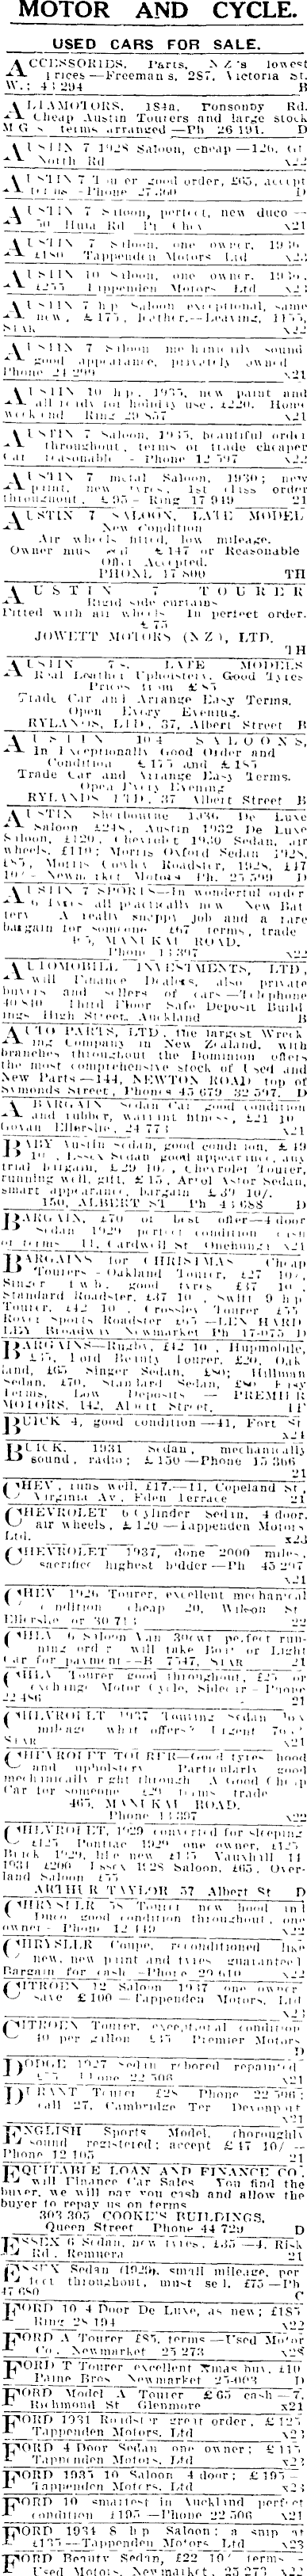 MOTOR AND CYCLE.
USED CARS FOR SALE.
ACCESSORIES, Parts, N Z's lowest
prices —Freeman's, 287, Victoria St.
W.; 43 294 B
ALLAMOTORS, 184a, Ponsonby Rd.
Cheap Austin Tourers and large stock
M G's terms arranged —Ph 26 191. D
AUSTIN 7 1928 Saloon, cheap —126, Gt
North Rd x22
AUSTIN 7 Tourer good order, £65, accept
terms Phone D
AUSTIN 7 Saloon, perfect, new duco —
50 Huia Rd Pt Chev x21
AUSTIN 7 Saloon, one owner, 1936,
£180 Tappenden Motors Ltd x23
AUSTIN 10 Saloon, one owner,
£255 Tappenden Motors Ltd
AUSTIN 7 h p Saloon exceptional, same
new, £175, leather.—Leaving, 1155,
STAR x22
AUSTIN 7 Saloon mechanically sound
good appearance, privately owned
Phone 24 299 x21
AUSTIN 10 h p, 1935, new paint and
all ready for holiday use, £220. Hone
weekend Ring 29 857 x21
AUSTIN 7 Saloon, 1935, beautiful order
throughout, terms or trade cheaper
Car reasonable - Phone 12 597 x22
AUSTIN 7 metal Saloon, 1930; new
paint, new tyres, 1st class order
throughout, £95 — Ring 17 949 21
AUSTIN 7 SALOON, LATE MODEL
New Condition
Air wheels fitted, low mileage.
Owner must sell £147 or Reasonable
Offer Accepted.
PHONE 17 800 TH
AUSTIN 7 TOURER
Rigid side curtains
Fitted with air wheels In perfect order.
£75
JOWETT MOTORS (N Z), LTD.
TH
AUSTIN 7's, LATE MODELS
Real Leather Upholstery, Good Tyres
Prices from £85
Trade Car and Arrange Easy Terms.
Open Every Evening.
RYLANDS, LTD, 37, Albert Street B
AUSTIN 10 4 SALOONS,
In Exceptionally Good Order and
Condition £175 and £185
Trade Car and Arrange Easy Terms.
Open Every Evening
RYLANDS LTD, 37 Albert Street B
AUSTIN Sherbourne 1936 De Luxe
Saloon £248, Austin 1932 De Luxe
Saloon, £120, Chevrolet 1930 Sedan, air
wheels, £110; Morris Oxford Sedan 1928,
£85, Morris Cowley Roadster, 1928, £47
10/- Newmarket Motors Ph. 25 599 D
AUSTIN 7 SPORTS—In wonderful order
6 Tyres all practically new New Bat
tery A really snappy job and a rare
bargain for someone £67 terms, trade
465, MANUKAU ROAD.
Phone 14 397 x22
AUTOMOBILE INVESTMENTS, LTD,
will Finance Dealers, also private
buyers and sellers of cars —Telephone
40 840 Third Floor Safe Deposit Build
ings High Street, Auckland B
AUTO PARTS, LTD, the largest Wreck
ing Company in New Zealand, with
branches throughout the Dominion offers
the most comprehensive stock of Used and
New Parts —144, NEWTON ROAD top of
Symonds Street, Phones 45 679 32 597. D
A BARGAIN Sedan Car good condition
and rubber, warrant fitness, £21 10
Govan Ellerslie, 24 773 x21
BABY Austin Sedan, good condition, £49
10, Essex Sedan good appearance, any
trial bargain, £29 10, Chevrolet Tourer,
running well, gift, £15, Ariel Astor Sedan,
smart appearance, bargain £39 10/.
150, ALBERT ST Ph 43 688 D
BARGAIN, £70 or best offer—4 door
Sedan 1929 perfect condition cash
or terms 11, Cardwell St Onehunga x21
BARGAINS for CHRISTMAS Cheap
Tourers - Oakland Tourer, £27 10,
Singer two h. good tyres £37 10,
Standard Roadster, £37 10, Swift 9 hp
Tourer, £42 10 Crossley Tourer £55
Rover Sports Roadster £65 —LEN HARD
LEY Broadway Newmarket Ph 17-075 D
BARGAINS—Rugby, £42 10, Hupmobile,
£35, Ford Beauty Tourer, £20, Oak
land, £65 Singer Sedan, £80; Hillman
Sedan, £70, Standard Sedan, £80 Easy
Terms, Low Deposits — PREMIER
MOTORS, 142, Albert Street. TF
BUICK 4, good condition —41, Fort St
x21
BUICK, 1931 Sedan, mechanically
sound, radio; £150 —Phone 15 366
21
CHEV, runs well, £17.—11, Copeland St,
Virginia Av, Eden Terrace 21
CHEVROLET 6 Cylinder Sedan, 4 door,
air wheels, £120 —Tappenden Motors
Ltd. x23
CHEVROLET 1937, done 2000 miles,
sacrifice highest bidder —Ph 45 297
x21
CHEV 1926 Tourer, excellent mechanical
condition cheap 20, Wilson St
Ellerslie or 30 713 22
CHEV 6 Saloon Van 30cwt perfect run-
ning order will take Boat or Light
Car for payment —B 7547, STAR 21
CHEV Tourer good throughout, £25 or
exchange Motor Cycle, Sidecar — Phone
22 486 21
CHEVROLET 1937 Touring Sedan low
mileage what offers? Urgent
STAR x21
CHEVROLET TOURER—Good tyres hood
and upholstery Particularly good
mechanically right through A Good Cheap
Car for someone £29 terms trade
465, MANUKAU ROAD.
Phone 14 397 x22
CHEVROLET, 1929 converted for sleeping
£125 Pontiac 1929 one owner, £125
Buick 1929, like new £135 Vauxhall 14
1934 £200 Essex 1928 Saloon, £65, Over-
land Saloon £55
ARTHUR TAYLOR 57 Albert St D
CHRYSLER 58 Tourer new hood and
Duco good condition throughout, one
owner — Phone 12 449 x22
CHRYSLER Coupe, reconditioned like
new, new paint and tyres guaranteed
Bargain for cash —Phone 29 640 x22
CITROEN 12 Saloon 1937 one owner
save £100 —Tappenden Motors, Ltd
x23
CITROEN Tourer, exceptional condition
40 per gallon £45 Premier Motors
D
DODGE 1927 Sedan rebored repainted
£75 Phone 22 506 x21
DURANT Tourer £28 Phone 22 506;
call 27, Cambridge Ter Devonport
x21
ENGLISH Sports Model, thoroughly
sound registered; accept £47 10/ —
Phone 12 105 21
EQUITABLE LOAN AND FINANCE CO.
will Finance Car Sales You find the
buyer, we will pay you cash and allow the
buyer to repay us on terms
303 305 COOKE'S BUILDINGS,
Queen Street Phone 44 729 D
ESSEX 6 Sedan, new tyres, £35 —4, Risk
Rd, Remuera 21
ESSEX Sedan (1929), small mileage, per
fect throughout, must sell. £75 —Ph
47 680 C
FORD 10 4 Door De Luxe, as new; £185
Ring 28 194 x22
FORD A Tourer £85, terms —Used Motor
Co, Newmarket 25 273 x28
FORD T Tourer excellent Xmas buy, £10
Paine Bros Newmarket 25-003 D
FORD Model A Tourer £65 cash —7,
Richmond St Glenmore x21
FORD 1931 Roadster great order, £125
Tappenden Motors, Ltd x23
FORD 4 Door Sedan one owner; £115
Tappenden Motors, Ltd x23
FORD 1935 10 Saloon 4 door; £195 —
Tappenden Motors, Ltd x23
FORD 10 smartest in Auckland perfect
condition £195 —Phone 22 506 x21
FORD 1934 8 hp Saloon; a snip at
£135 —Tappenden Motors Ltd x23
FORD Beauty Sedan, £22 10/ terms —
Used Motors, Newmarket, 25 273 x28